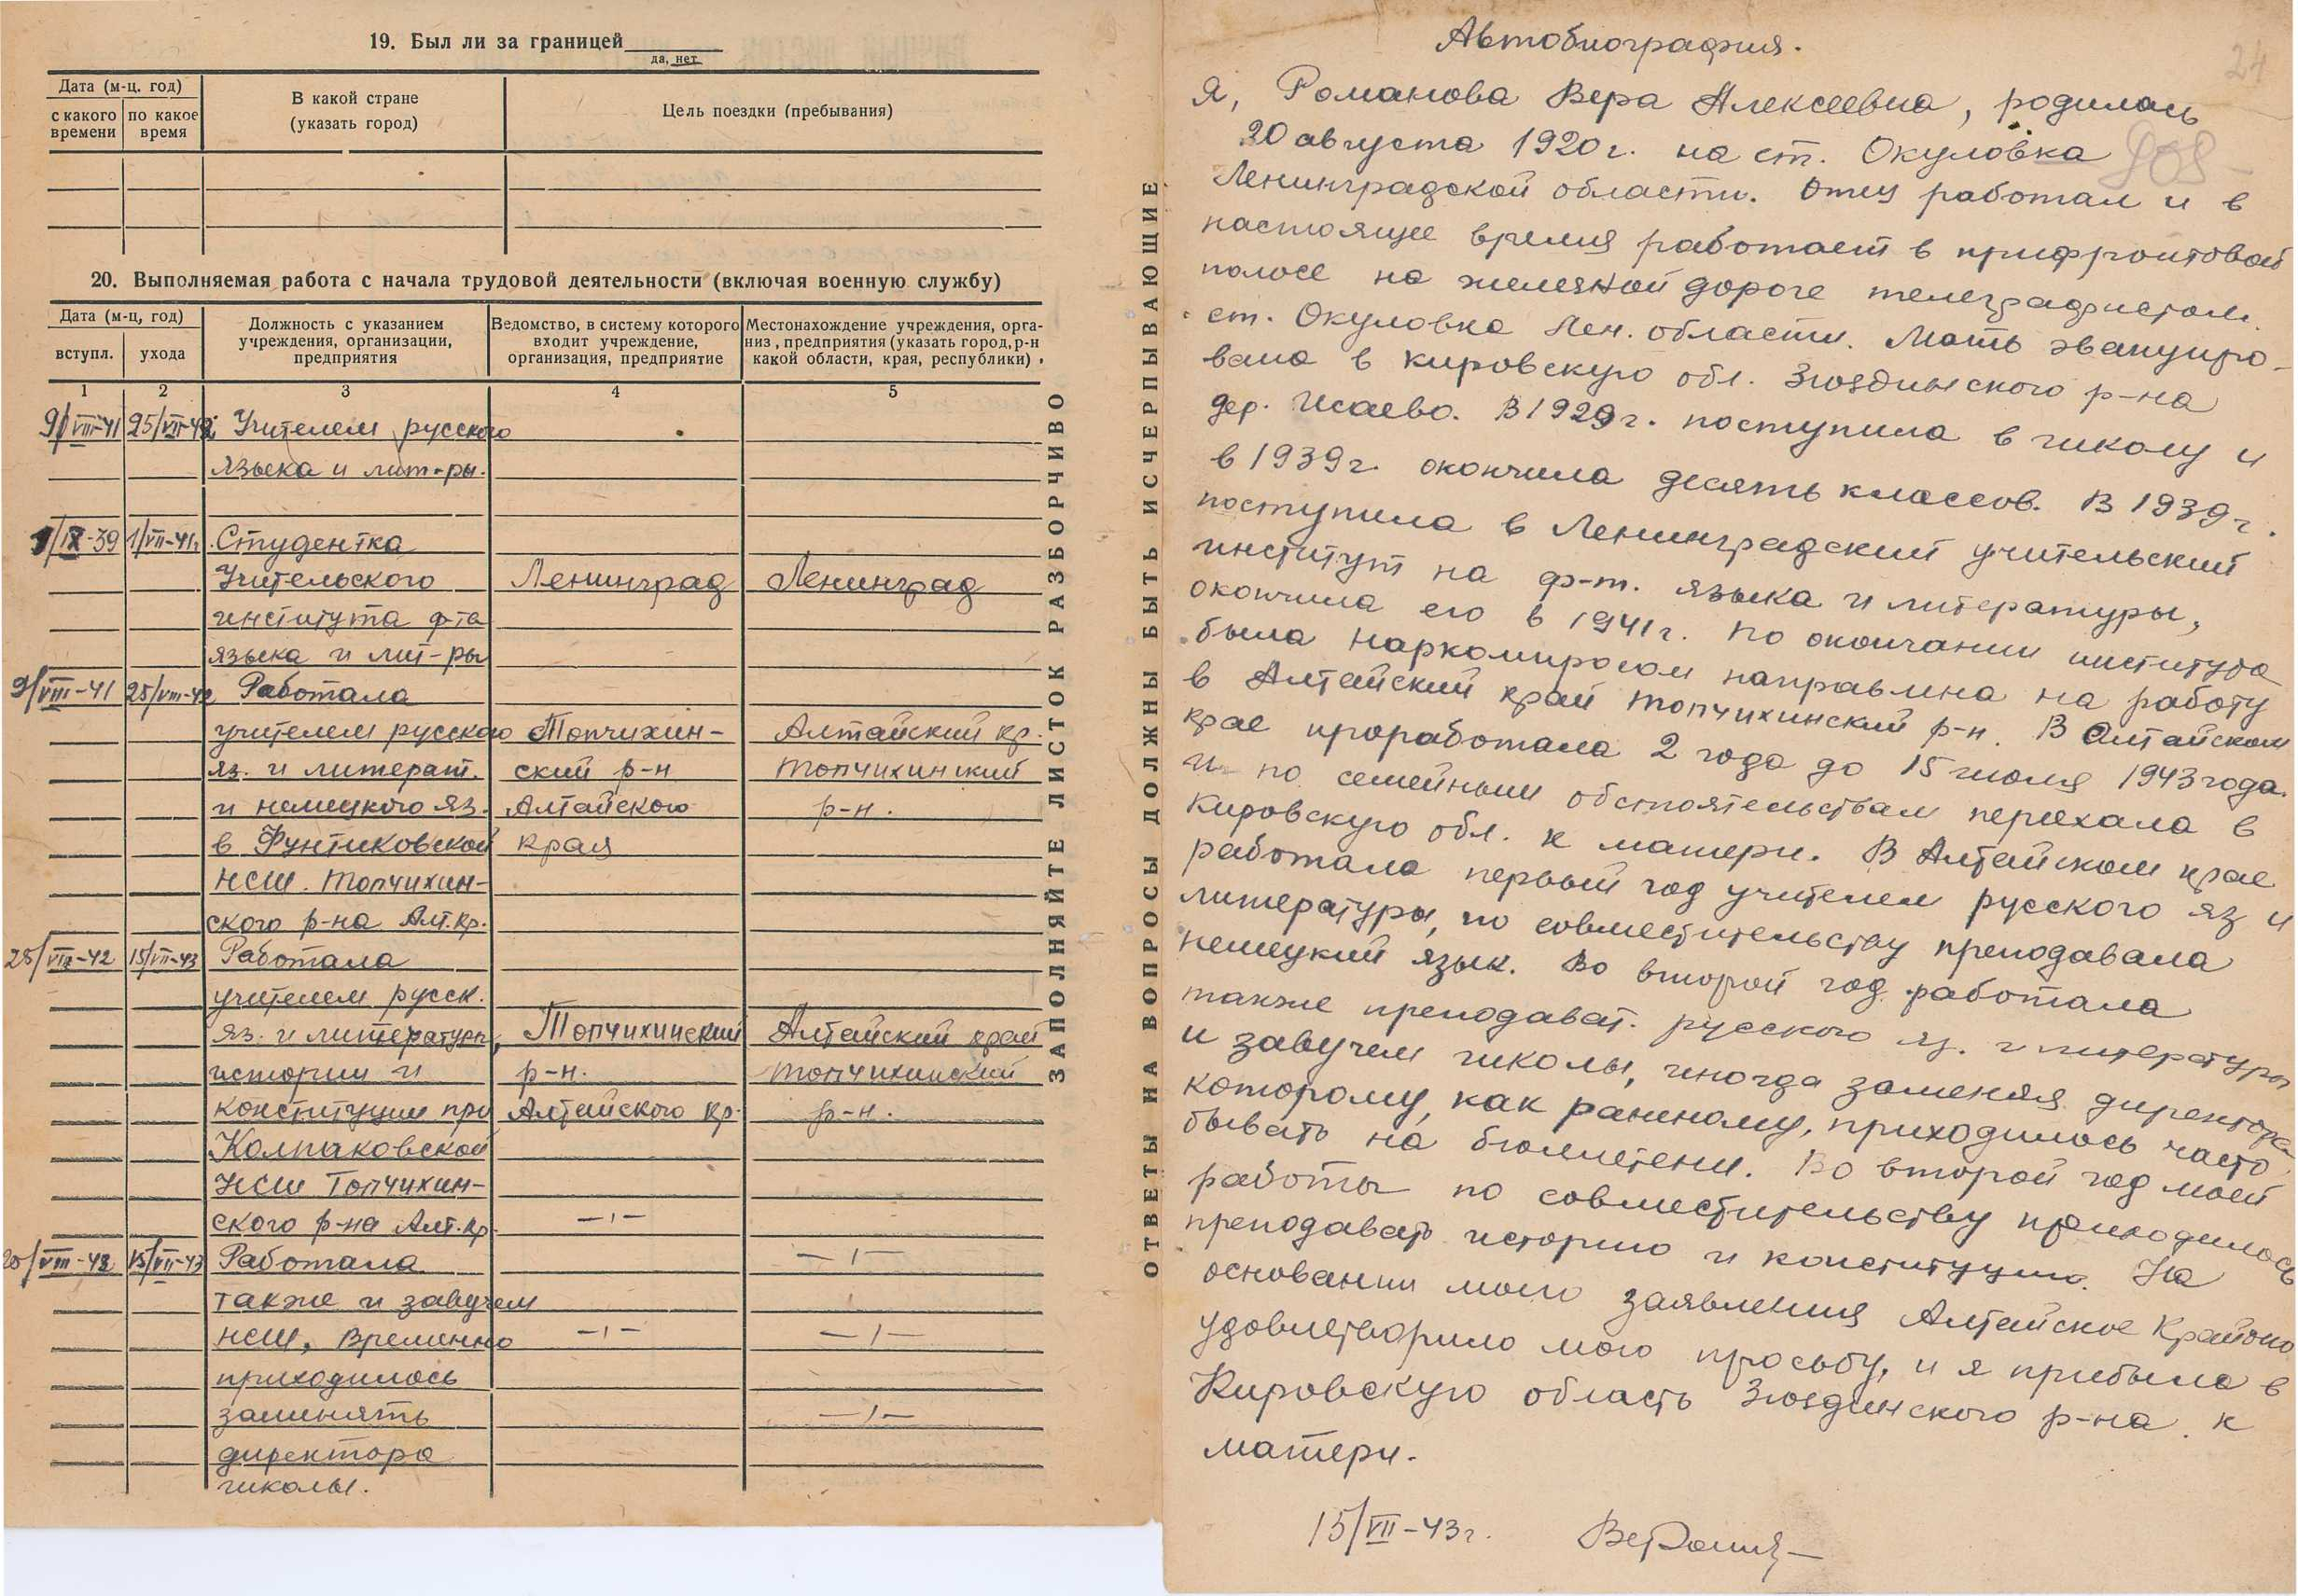 19. Был ли за границей
да, нет
Дата (м-ц. год)
с какого времени
по какое время
В какой стране
(указать город)
Цель поездки (пребывания)
20. Выполняемая работа с начала трудовой деятельности (включая военную службу)
Дата (м-ц, год)
вступл.
ухода
Должность с указанием учреждения, организации, предприятия
Ведомство, в систему которого входит учреждение, организация, предприятие
Местонахождение учреждения, орга-
низ, предприятия (указать город, р-н
какой области, края, республики)
1 2 3 4 5
9/VIII-41 25/VII-42 Учителем русского
языка и лит-ры.
1/IX-39 1/VII-41г. Студентка
Учительского Ленинград Ленинград
института ф-та
языка и лит-ры
9/VIII-41 25/VIII-42 Работала
учителем русского Топчихин- Алтайский кр.
яз. и литерат. ский р-н Топчихинский
и немецкого яз. Алтайского р-н.
в Фунтиковской края
НСШ. Топчихин-
ского р-на Алт.кр.
25/VIII-42 15/VII-43 Работала
учителем русск.
яз. и литературы, Топчихинский Алтайский край
истории и р-н. Топчихинский
конституции при Алтайского кр. р-н.
Колпаковской
НСШ Топчихин-
ского р-на Алт.кр. —ı—
25/VIII-42 15/VII-43 Работала —ı—
также и завучем
НСШ, Временно —ı— —ı—
приходилось
заменять —ı—
директора
школы.
ЗАПОЛНЯЙТЕ ЛИСТОК РАЗБОРЧИВО
ОТВЕТЫ НА ВОПРОСЫ ДОЛЖНЫ БЫТЬ ИСЧЕРПЫВАЮЩИЕ
24
Автобиография.
Я, Романова Вера Алексеевна, родилась
20 августа 1920 г. на ст. Окуловка
Ленинградской области. Отец работал и в
настоящее время работает в прифронтовой
полосе на железной дороге телеграфистом
ст. Окуловка Лен. области. Мать эвакуиро-
вана в Кировскую обл. Зюздинского р-на
дер. Исаево. В 1929 г. поступила в школу и
в 1939 г. окончила десять классов. В 1939 г.
поступила в Ленинградский учительский
институт на ф-т. языка и литературы,
окончила его в 1941 г. По окончании института
была наркомпросом направлена на работу
в Алтайский край Топчихинский р-н. В Алтайском
крае проработала 2 года до 15 июля 1943 года.
и по семейным обстоятельствам переехала в
Кировскую обл. к матери. В Алтайском крае
работала первый год учителем русского яз и
литературы, по совместительству преподавала
немецкий язык. Во второй год работала
также преподават. русского яз. и литературы
и завучем школы, иногда заменяя директора
которому, как раненому, приходилось часто
бывать на бюллетени. Во второй год моей
работы по совместительству приходилось
преподавать историю и конституцию. На
основании моего заявления Алтайское Крайоно
удовлетворило мою просьбу, и я прибыла в
Кировскую область Зюздинского р-на к
матери.
15/VII-43 г.